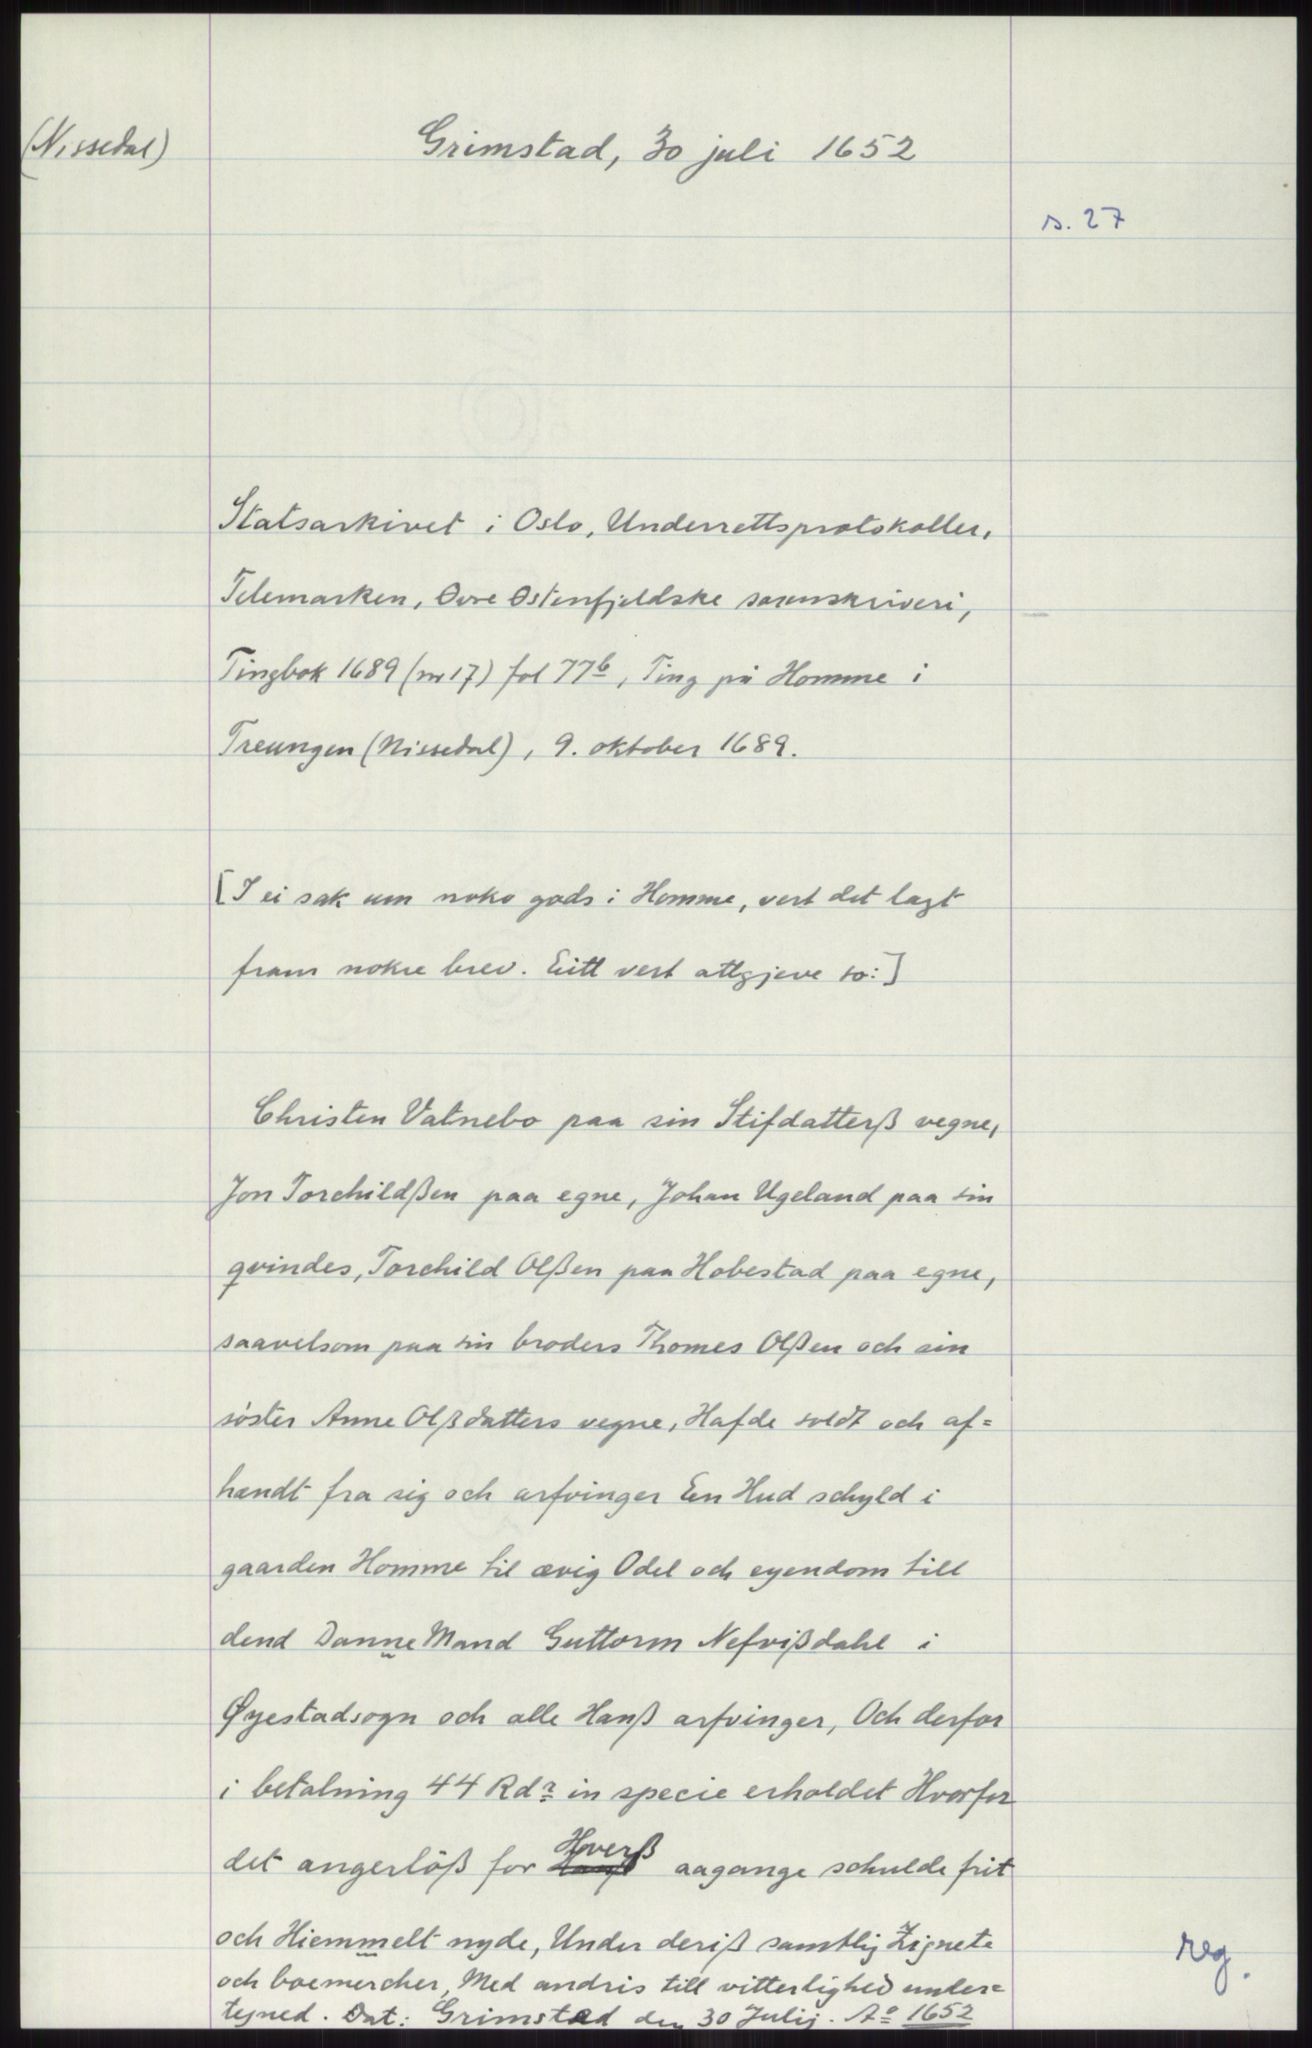 (Nissedal)
Grimstad, 30 juli 1652
s. 27
Statsarkivet i Oslo, Underrettsprotokoller,
Telemarken, Øvre Østenfjeldske sorenskriveri,
Tingbok 1689 (nr 17) fol 77b, Ting på Homme i
Treungen (Nissedal), 9. oktober 1689.
[I ei sak um noko gods i Homme, vert det lagt
fram nokre brev. Eitt vert attgjeve so:]
Christen Vatnebo paa sin Stifdatterß vegne,
Jon Torchildßen paa egne, Johan Ugeland paa sin
qvindes, Torchild Olßen paa Hobestad paa egne,
saavelsom paa sin broders Thomes Olßen och sin
söster Anne Olßdatters vegne, Hafde soldt och af=
hændt fra sig och arfvinger En Hud schyld i
gaarden Homme til ævig Odel och eyendom till
dend Danne Mand Guttorm Nefvißdahl i
Øyestadsogn och alle Hanß arfvinger, Och derfor
i betalning 44 Rdr in specie erholdet Hvorfor
det angerlöß for Hverß aagange schulde frit
och Hiemmelt nyde, Under deriß samtlig Zignete
och boemercher, Med andris till vitterlighed under=
tegned. Dat: Grimsted den 30 Julij. Ao 1652
reg.